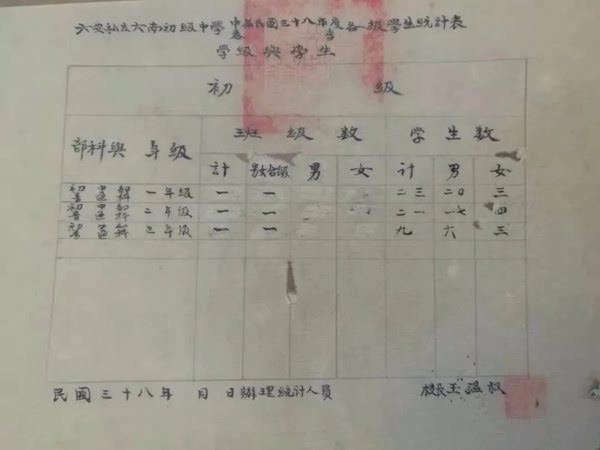 六安私立六南初級中學中華民國三十八年度春季各級學生統計表
學級與學生
初 級
部科與年級 班級數 学生數
計 男女合級 男 女 計 男 女
初中部普通科 一年級 一 一 二三 二〇 三
初中部普通科 二年級 一 一 二一 一七 四
普通科 三年級 一 一 九 六 三
民國三十八年 月 日辦理統計人員 校長王温叔